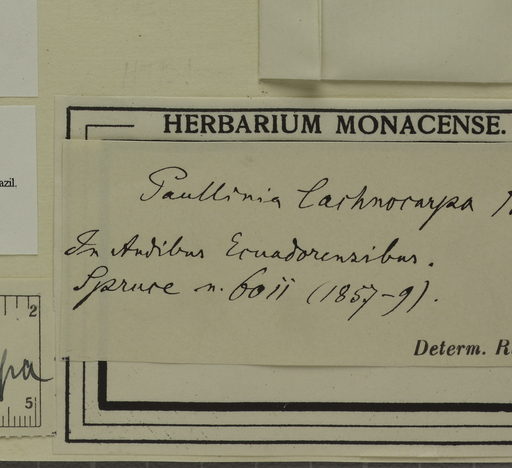 azil.
HERBARIUM MONACENSE.
Paullinia lachnocarpa
In Andibus Ecuadorensibus.
Spruce n. 6011 (1857-9).
Determ. R
2
pa
5